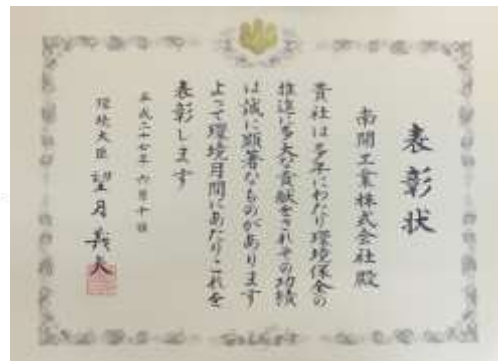 表彰状
南開工業株式会社殿
貴社は多年にわたり環境保全の
推進に多大な貢献をされその功績
は誠に顕著なものがあります
よって環境月間にあたりこれを
表彰します
平成二十七年六月十日
環境大臣 望月義夫